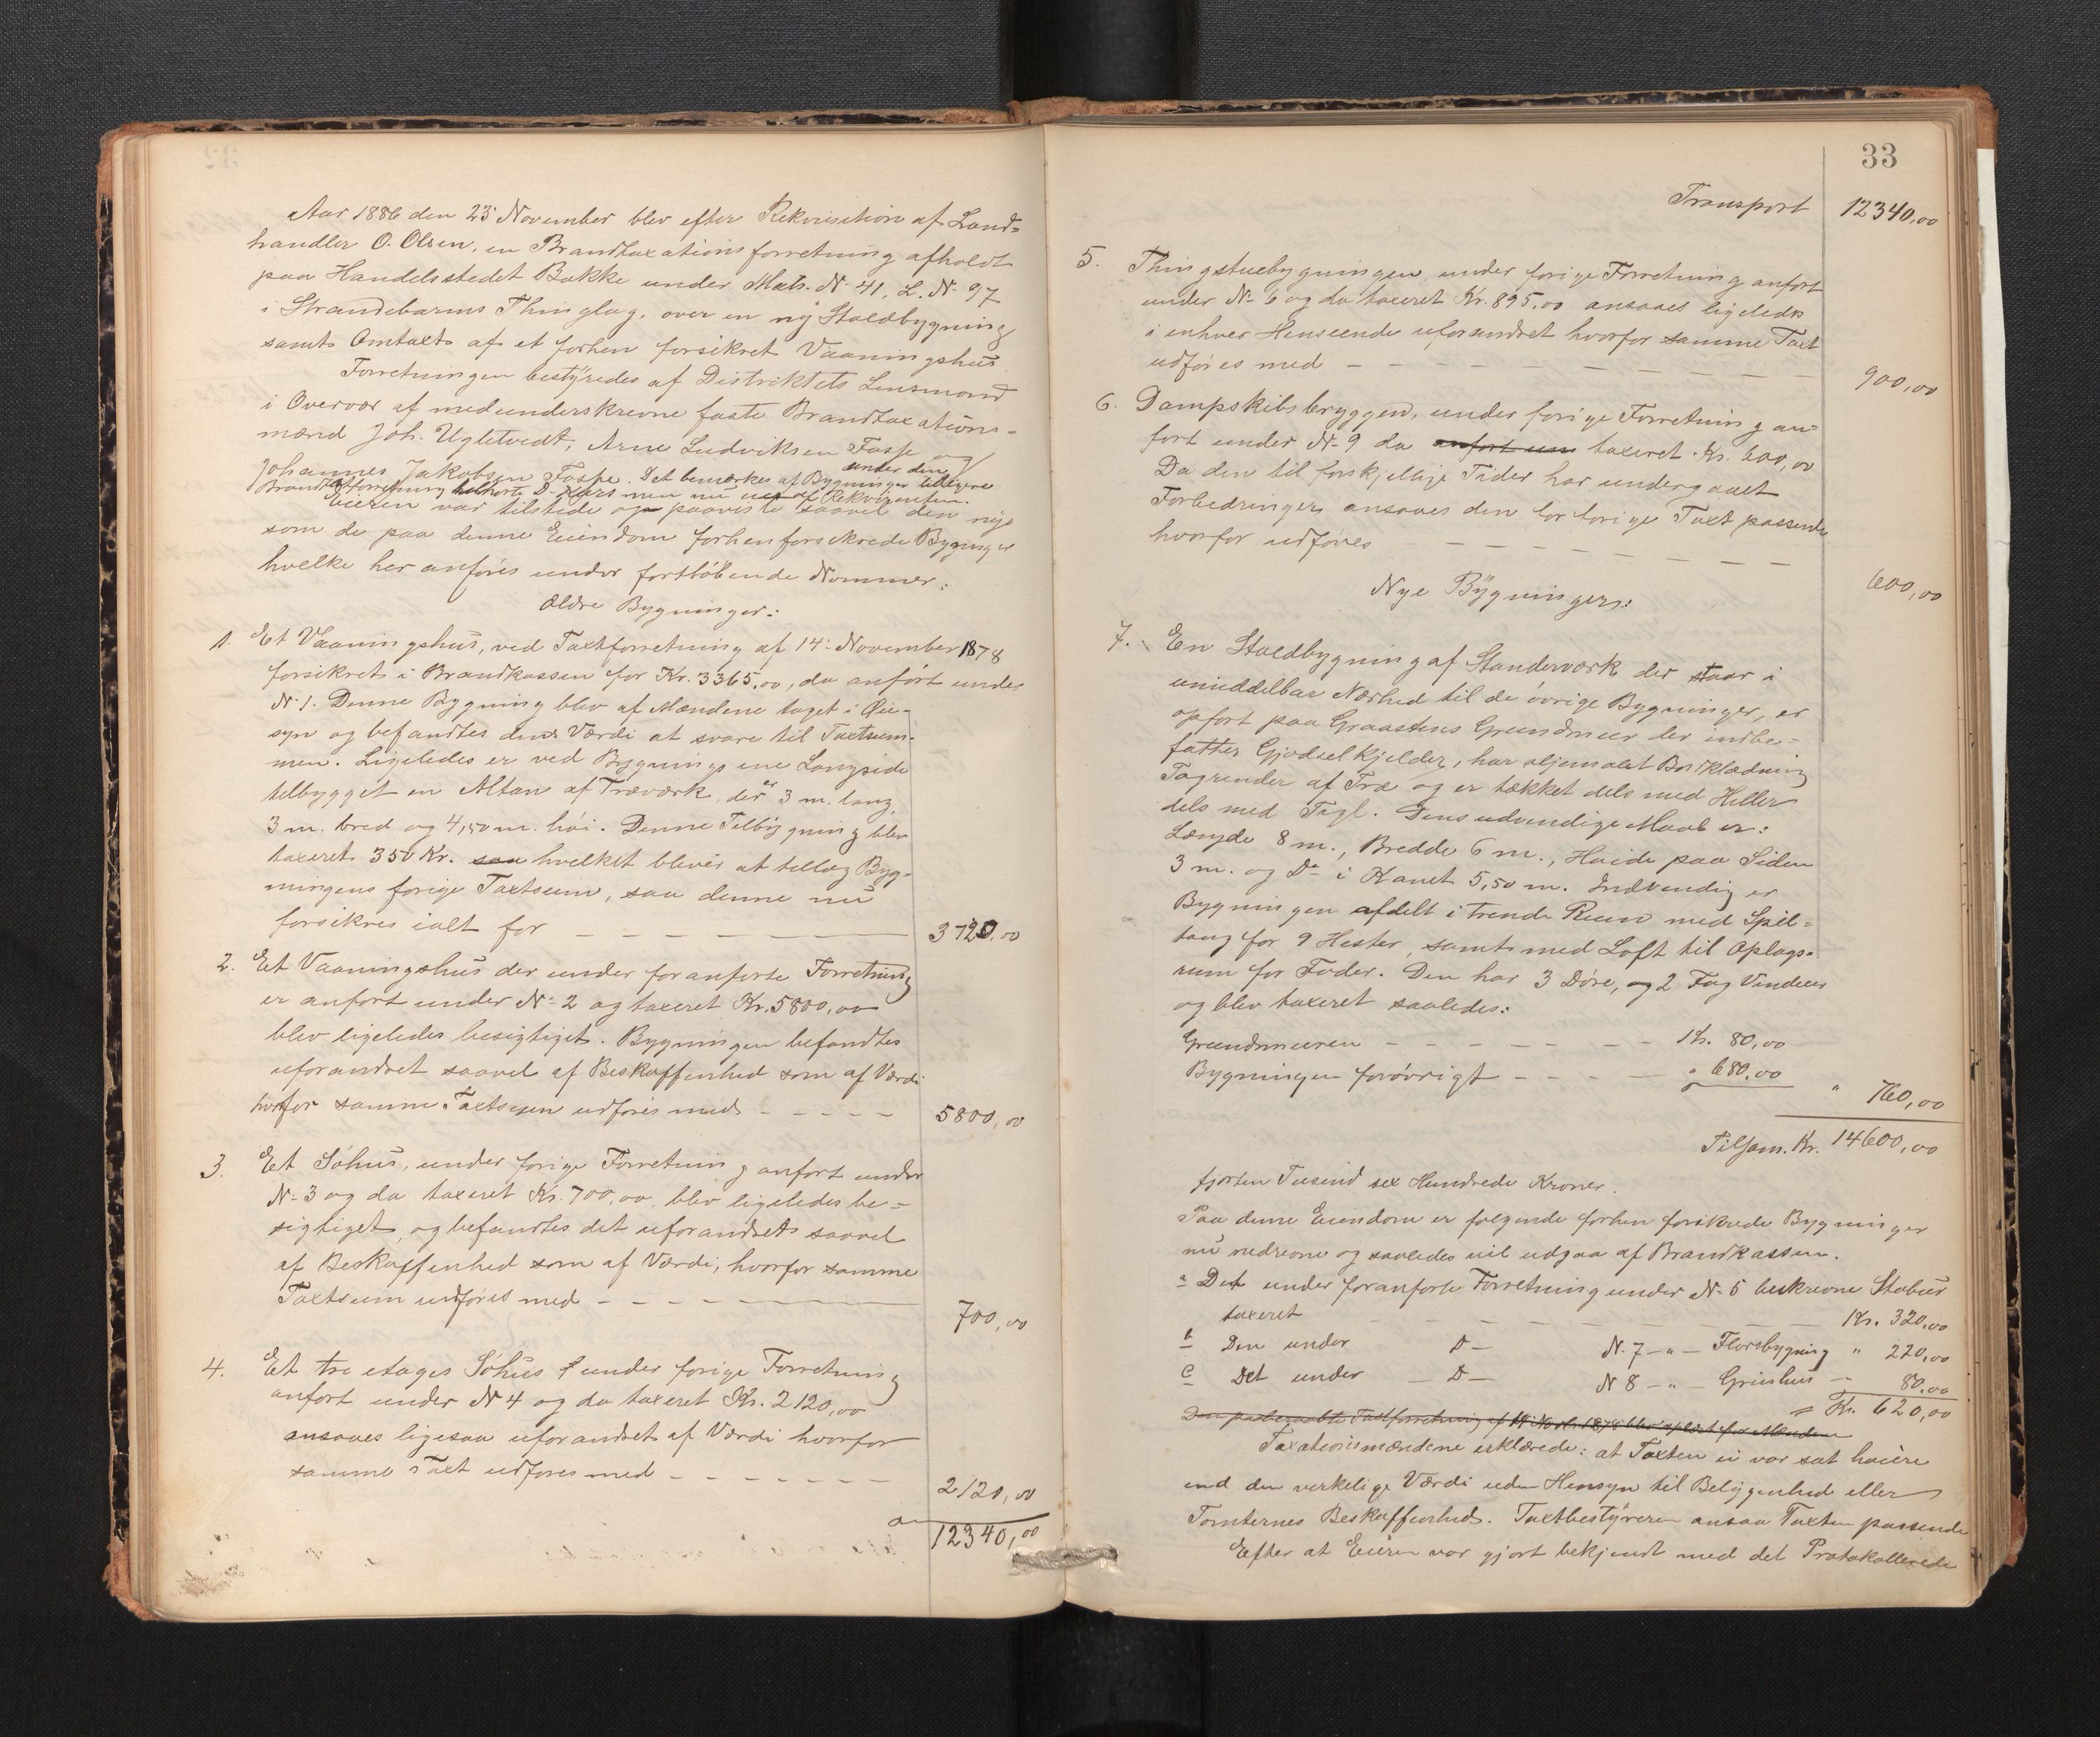 Aar 1886 den 23 November blev efter Rekvisition af Land=
handler O. Olsen, en Brandtaxationsforretning afholdt
paa Handelsstedet Bakke under Matr. N. 41, L. N. 97
i Strandebarms Thinglag, over en ny Staldbygning
samt Omtaxt af et forhen forsikret Vaaningshus
Forretningen bestyredes af Distriktets Lensmand
i Overvær af medunderskrevne faste Brandtaxations-
mænd Joh. Ugletvedt, Arne Ludviksen Fosse og
Johannes Jakobsen Fosse. Det bemærkes af Bygninger tidligere
under den
Brandtforretning tilhørte D. men nu Rekvirenten.
Eieren var tilstede og paaviste saavel den nye
som de paa denne Eiendom forhen forsikrede Bygninger
hvilke her anføres under fortløbende Nommer:
Ældre Bygninger:
1. Et Vaaningshus, ved Taxtforretning af 14. November 1878
forsikret i Brandkassen for Kr. 3365,00, da anført under
N. 1. Denne Bygning blev af Mændene taget i Øie-
syn og befandtes dens Værdi at svare til Taxtsum-
men. Ligeledes er ved Bygningens ene Langside
tilbygget en Altan af Træværk, der er 3 m. lang,
3 m. bred og 4,50 m. høi. Denne Tilbygning blev
taxeret 350 Kr. saa hvilket bliver at tillæg Byg-
ningens forige Taxtsum, saa denne nu
forsikres ialt for - - - - 3720,00
2. Et Vaaningshus der under foranførte Forretning
er anført under N. 2 og taxeret Kr. 5800,00
blev ligeledes besigtiget. Bygningen befandtes
uforandret saavel af Beskaffenhed som af Værdi
hvorfor samme Taxtsum udføres med - - - - - 5800,00
3. Et Søhus, under forige Forretning anført under
N. 3 og da taxeret Kr. 700,00, blev ligeledes be=
sigtiget, og befandtes det uforandret saavel
af Beskaffenhed som af Værdi, hvorfor samme
Taxtsum udføres med - - - - 700,00
4. Et tre etages Søhus under forige Forretning
anført under N 4 og da taxeret Kr. 2120,00
ansaaes ligesaa uforandret af Værdi hvorfor
samme Taxt udføres med - - - - - - - 2120,00
12340,00
33
Transport 12340,00
5. Thingstuebygningen under forige Forretning anført
under N. 6 og da taxeret Kr. 895,00 ansaaes ligeledes
i enhver Henseende uforandret hvorfor samme Taxt
udføres med - - - - - - - - 900,00
6. Dampskibsbryggen, under forige Forretning an=
ført under N. 9 da anført un taxeret Kr. 600,00
Da den til forskjellige Tider har undergaaet
Forbedringer ansaaes den for forige Taxt passende
hvorfor udføres - - - - - - - 600,00
Nye Bygninger:
7. En Staldbygning af Standerværk der staar i
umiddelbar Nærhed til de øvrige Bygninger, er
opført paa Graastens Grundmur der indbe=
fatter Gjødselkjelder, har oljemalet Bordklædning
Tagrender af Træ og er tækket dels med Heller
dels med Tegl. Dens udvendige Maal er:
Længde 8 m., Bredde 6 m., Høide paa Siden
3 m. og Do i Kanet 5,50 m. Indvendig er
Bygningen afdelt i trende Rum med Spil=
taug for 9 Hester, samt med Loft til Oplags-
rum for Foder. Den har 3 Døre, og 2 Fag Vinduer
og blev taxeret saaledes:
Grundmuren - - - - - - - Kr. 80,00
Bygningen forøvrigt - - - - " 680,00 " 760,00
Tilsam. Kr. 14600,00
fjorten Tusind sex Hundrede Kroner.
Paa denne Eiendom er følgende forhen forsikrede Bygninger
nu nedrevne og saaledes vil udgaa af Brandkassen.
a Det under foranførte Forretning under N. 5 beskrevne Stabur
taxeret - - - - - Kr. 320,00
b Den under D- N. 7 -"- Florsbygning " 220,00
c Det under - D- N 8 -"- Grisehus - 80,00
= Kr. 620,00
Den paaberaabte Taxtforretning af 14 Novbr. 1878 blev oplæst for Mændene
Taxationsmændene erklærede: at Taxten ei var sat høiere
end den verkelige Værdi uden Hensyn til Beliggenhed eller
Tomternes Beskaffenhed. Taxtbestyreren ansaa Taxten passende
Efter at Eieren var gjort bekjendt med det Protokollerede